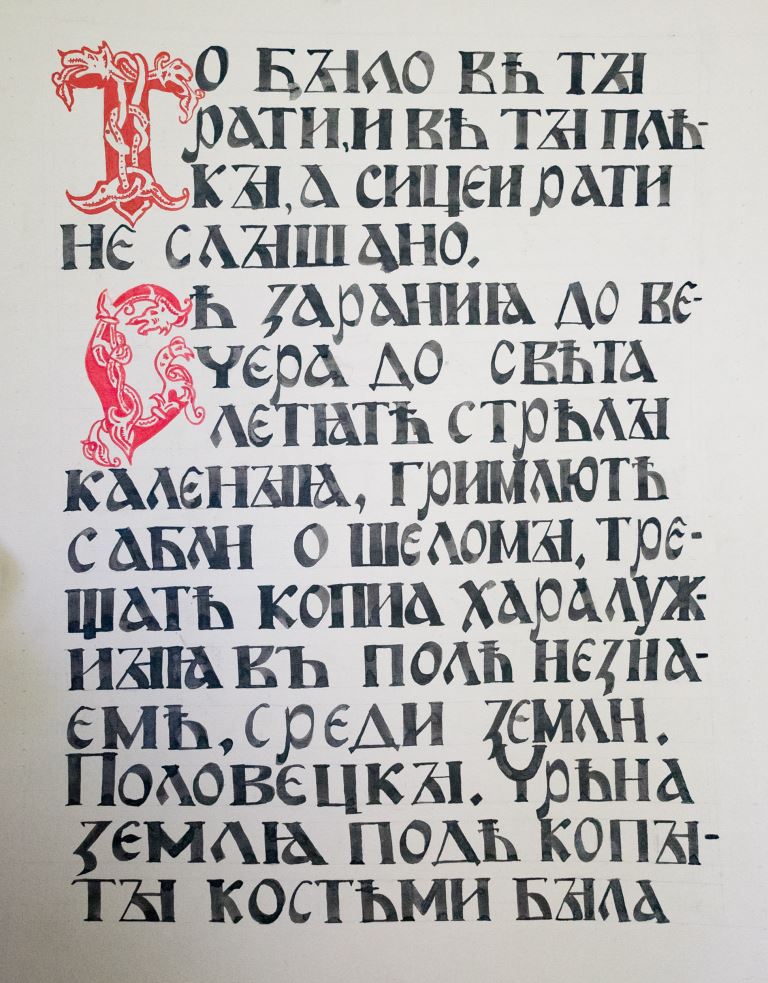 ТО БꙐЛО ВѢ ТꙐ
РАТИ, И ВѢ ТꙐ ПЛѢ-
КꙐ, А СИЦЕИ РАТИ
НЕ СЛꙐШАНО.
СѢ ЗАРАНИꙖ ДО ВЕ-
ЧЕРА ДО СВѢТА
ЛЕТꙖТѢ СТРѢЛꙐ
КАЛЕНꙐꙖ, ГРИМЛЮТѢ
САБЛИ О ШЕЛОМꙐ, ТРЕ-
ЩАТѢ КОПИА ХАРАЛУЖ-
ИꙐꙖ ВЪ ПОЛѢ НЕЗНА-
ЕМѢ, СРЕДИ ЗЕМЛИ.
ПОЛОВЕЦКꙐ. ЧРѢНА
ЗЕМЛꙖ ПОДѢ КОПꙐ-
ТꙐ КОСТѢМИ БꙐЛА